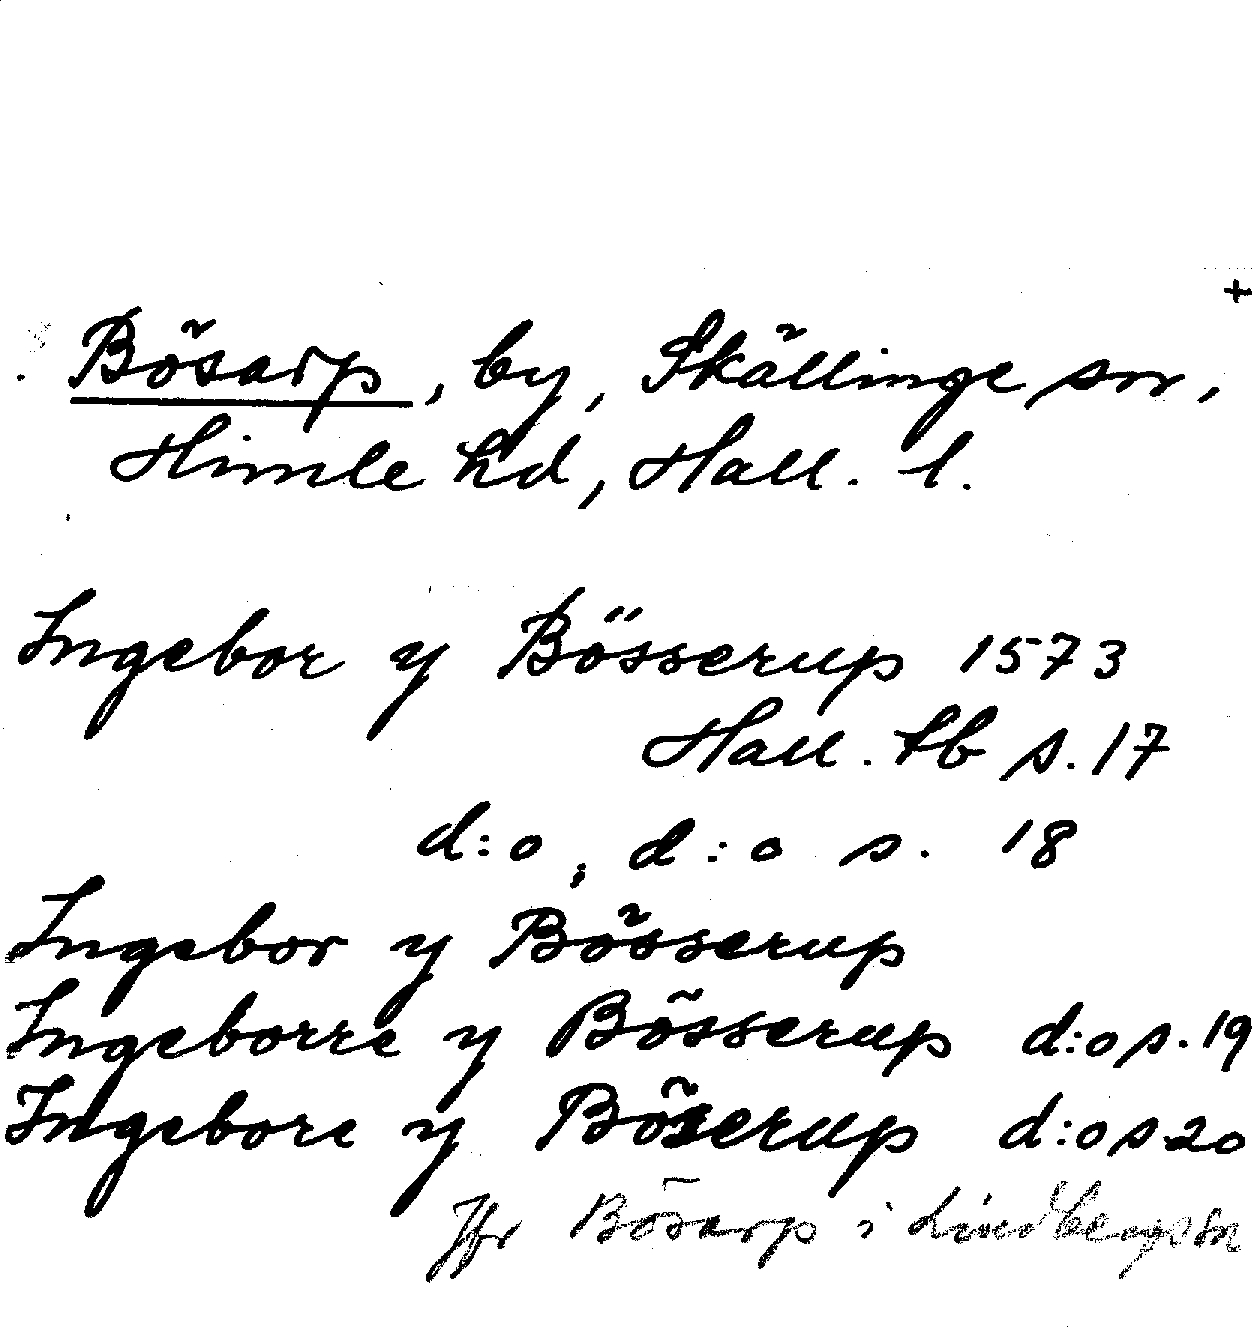 +
Bösarp, by, Skällinge sn,
Himle hd, Hall. l.
Ingebor y Bösserup 1573
Hall. Sb s. 17
d:o, d:o s. 18
Ingebor y Bösserup
Ingeborre y Bösserup d:o s. 19
Ingebore y Böserup d:o s 20
Jfr Bösarp i Lindbergsn